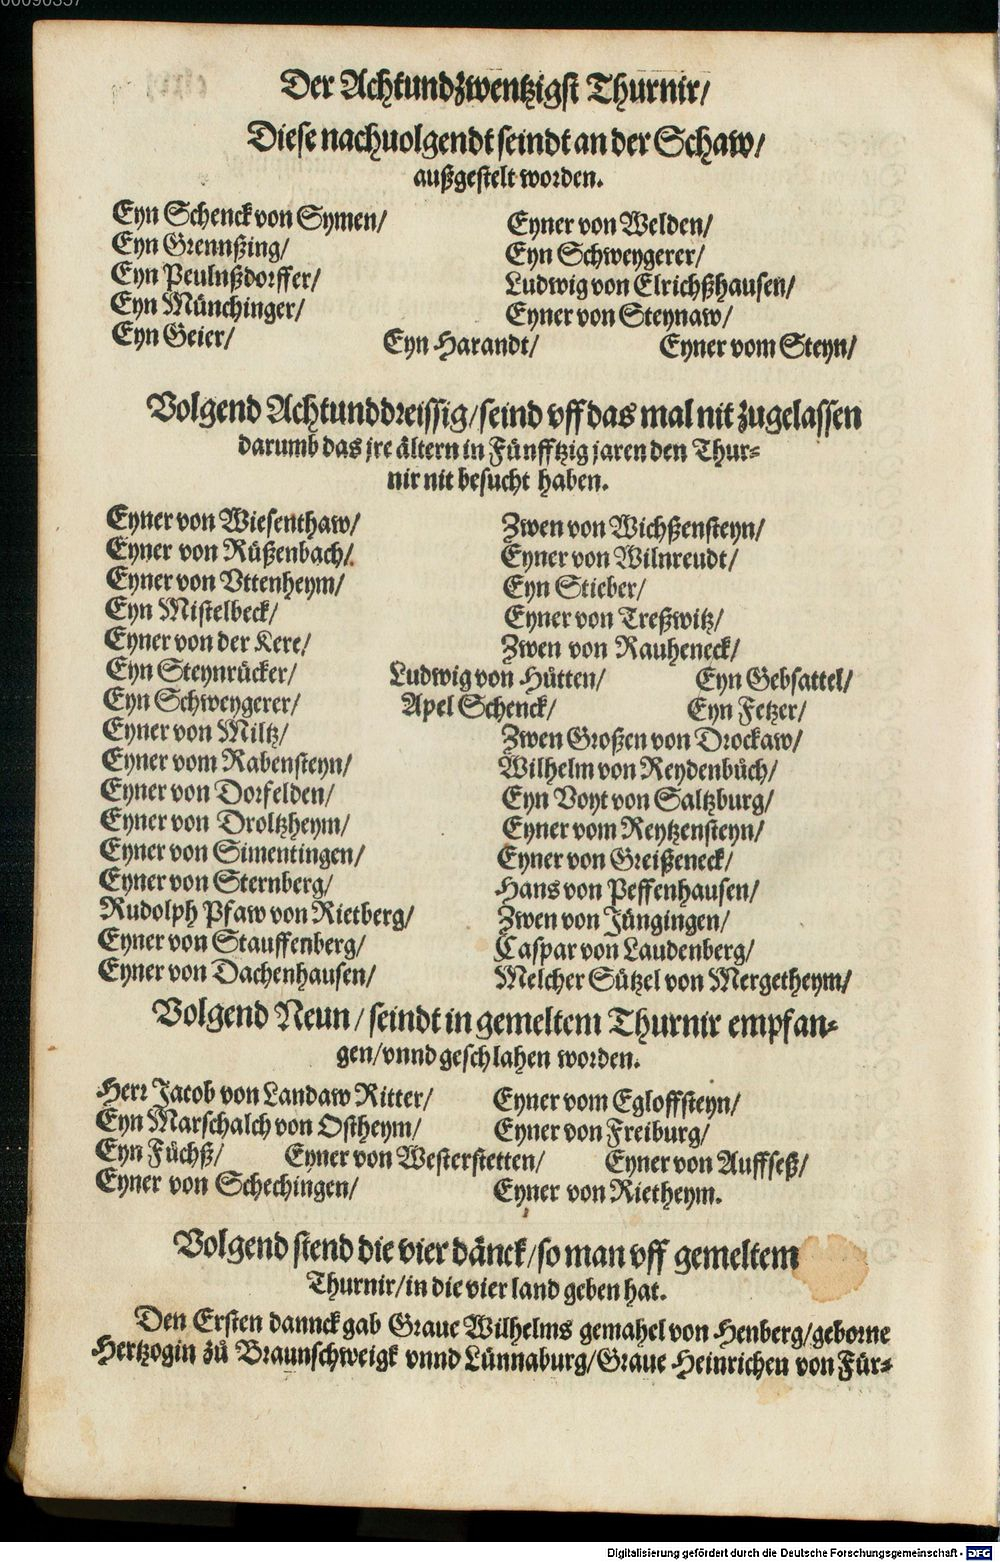 Der Achtundzwentzigst Thurnir/
Diese nachuolgendt seindt an der Schaw/
außgestelt worden.
Eyn Schenck von Symen/
Eyn Grennßing/
Eyn Peulnßdorffer/
Eyn Münchinger/
Eyner von Welden/
Eyn Schweygerer/
Ludwig von Elrichßhausen/
Eyner von Steynaw/
Eyn Geier/ Eyn Harandt/ Eyner vom Steyn/
Volgend Achtunddreissig/seind vff das mal nit zugelassen
darumb das jre ältern in Fünfftzig jaren den Thur⸗
nir nit besucht haben.
Eyner von Wiesenthaw/
Eyner von Rüßenbach/
Eyner von Vttenheym/
Eyn Mistelbeck/
Eyner von der Kere/
Zwen von Wichßensteyn/
Eyner von Wilnreudt/
Eyn Stieber/
Eyner von Treßwitz/
Zwen von Rauheneck/
Eyn Steynrücker/ Ludwig von Hütten/ Eyn Gebsattel/
Eyn Schweygerer/ Apel Schenck/ Eyn Fetzer/
Eyner von Miltz/
Eyner vom Rabensteyn/
Eyner von Dorfelden/
Eyner von Droltzheym/
Eyner von Simentingen/
Eyner von Sternberg/
Rudolph Pfaw von Rietberg/
Eyner von Stauffenberg/
Eyner von Dachenhausen/
Zwen Großen von Drockaw/
Wilhelm von Reydenbüch/
Eyn Voyt von Saltzburg/
Eyner vom Reytzensteyn/
Eyner von Greißeneck/
Hans von Peffenhausen/
Zwen von Jüngingen/
Caspar von Laudenberg/
Melcher Sützel von Mergetheym/
Volgend Neun/ seindt in gemeltem Thurnir empfan⸗
gen/vnnd geschlahen worden.
Herr Jacob von Landaw Ritter/
Eyn Marschalch von Ostheym/
Eyner vom Egloffsteyn/
Eyner von Freiburg/
Eyn Füchß/ Eyner von Westerstetten/ Eyner von Auffseß/
Eyner von Schechingen/
Eyner von Rietheym.
Volgend stend die vier dänck/so man vff gemeltem
Thurnir/in die vier land geben hat.
Den Ersten dannck gab Graue Wilhelms gemahel von Henberg/geborne
Hertzogin zů Braunschweigk vnnd Lünnaburg/Graue Heinrichen von Für⸗
Digitalisierung gefördert durch die Deutsche Forschungsgemeinschaft - DFG